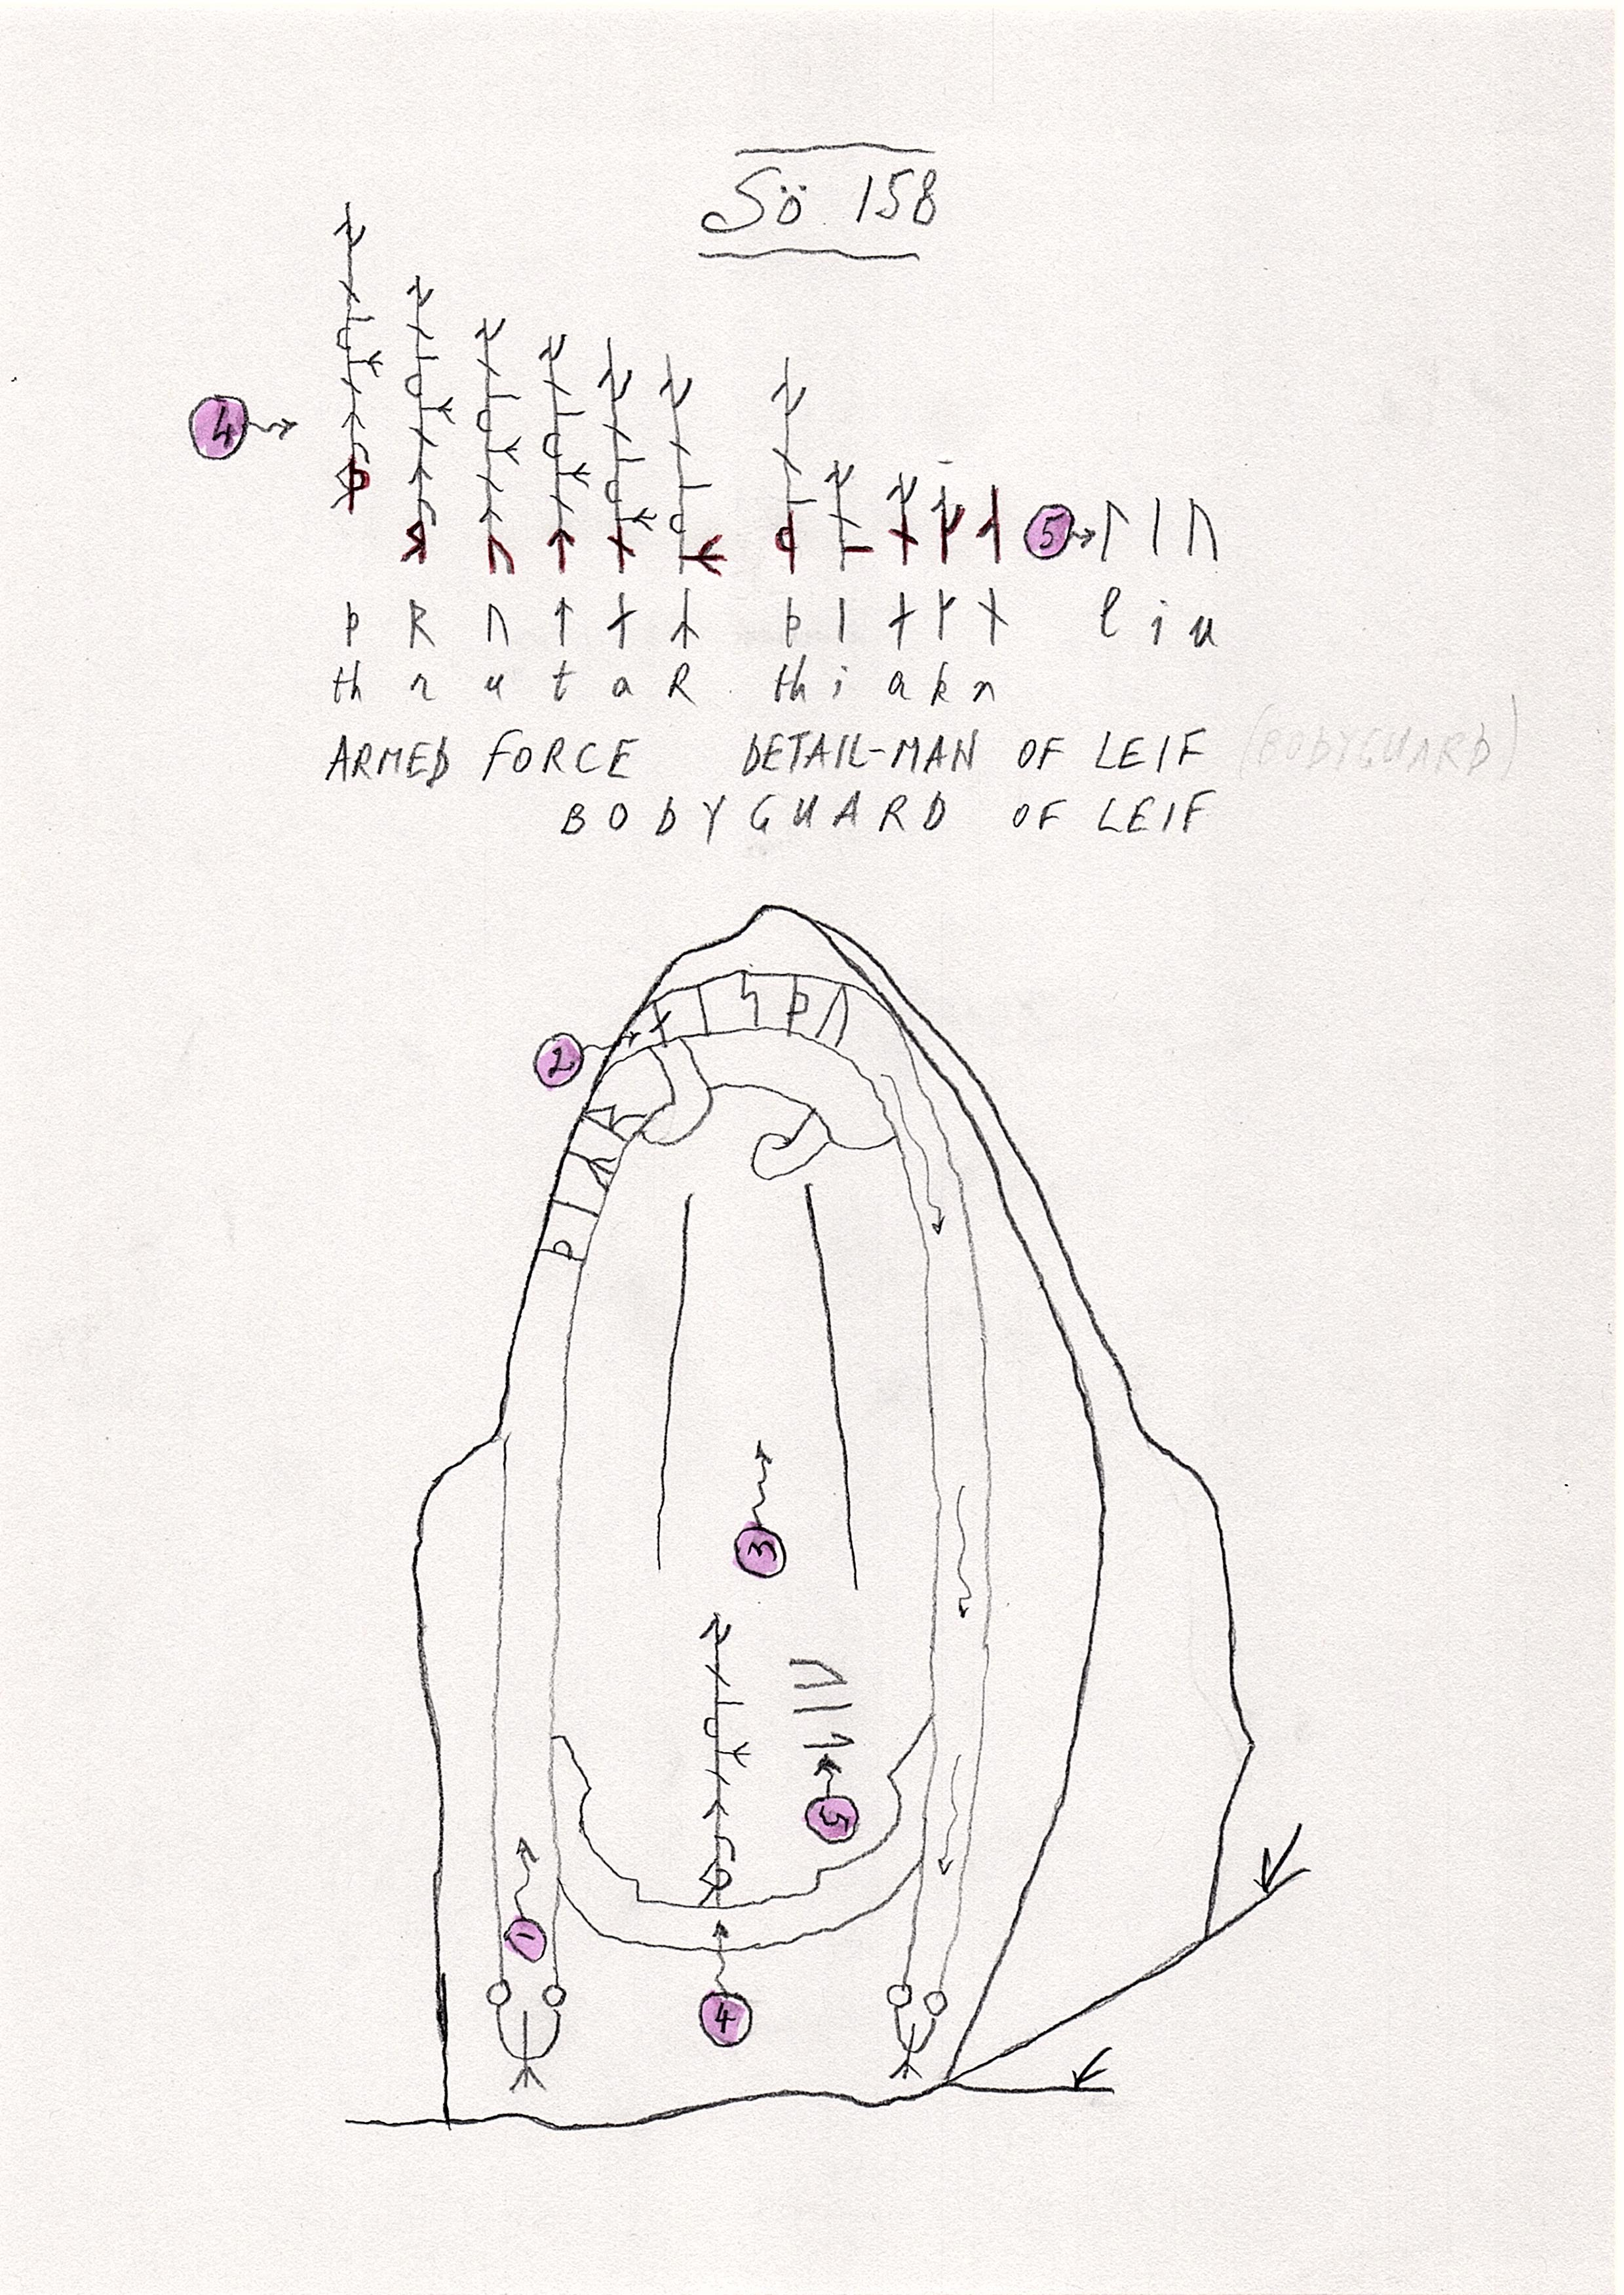 Sö 158
4
5 ᛚ ᛁ ᚢ
ᚦ ᚱ ᚢ ᛏ ᛅ ᛦ ᚦ ᛁ ᛅ ᚴ ᚾ l i u
th r u t a R thi a k n
ARMED FORCE DETAIL-MAN OF LEIF (BODYGUARD)
BODYGUARD OF LEIF
2
ᚦ ᛁ
ᛅ ᛁ ᛋ ᚦ ᚢ
3
ᛚ ᛁ ᚢ
5
1
4